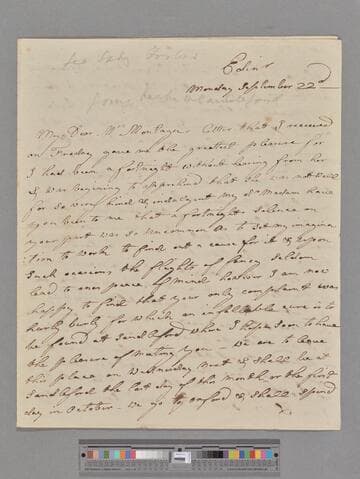 Edinr
Monday September 22d
My Dear Mrs Montagu's letter that I received
on Tuesday gave me the greatest pleasure for
I had been a fortnight without hearing from her
& was beginning to apprehend that she was not well
for so very kind & indulgent my dr Madam have
you been to me that a fortnights silence on
your part was so uncommon as to set my imagina
tion to work to find out a cause for it & upon
such occasions the flights of fancy seldom
lead to our peace of mind however I am now
happy to find that your only complaint was
hurly burly for which an infallible cure is to
be found at Sandleford where I hope soon to have
the pleasure of meeting you We are to leave
this place on Wednesday next & shall be at
Sandleford the last day of this month or the first
day in October. We go by Oxford & shall spend